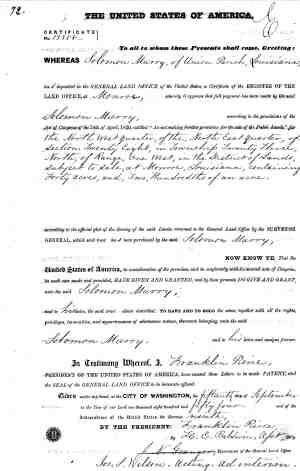 72.
THE UNITED STATES OF AMERICA,
CERTIFICATE
To all to whom these Presents shall come, Greeting:
WHEREAS Solomon Murry, of Union Parish, Louisiana,
has deposited in the GENERAL LAND OFFICE of the United States, a Certificate of the REGISTER OF THE
LAND OFFICE, at Monroe, whereby it appears that full payment has been made by the said
Solomon Murry, according to the provisions of the
Act of Congress of the 24th of April, 1820, entitled "An act making further provision for the sale of the Public Lands," for
the North West quarter, of the North East quarter, of
Section Twenty Eight, in Township Twenty Three,
North, of Range One West, in the District of Lands,
Subject to Sale, at Monroe, Louisiana, containing
Forty acres, and Two Hundredths of an acre.
according to the official plat of the Survey of the said Lands, returned to the General Land Office by the SURVEYOR
GENERAL, which said tract has been purchased by the said Solomon Murry,
NOW KNOW YE, That the
United States of America, in consideration of the premises, and in conformity with the several acts of Congress,
in such case made and provided, HAVE GIVEN AND GRANTED, and by these presents DO GIVE AND GRANT,
unto the said Solomon Murry,
and to his heirs, the said tract above described: TO HAVE AND TO HOLD the same, together with all the rights,
privileges, immunities, and appurtenances of whatsoever nature, thereunto belonging, unto the said
Solomon Murry and to his heirs and assigns forever.
In Testimony Whereof, I, Franklin Pierce
PRESIDENT OF THE UNITED STATES OF AMERICA, have caused these Letters to be made PATENT, and
the SEAL of the GENERAL LAND OFFICE to be hereunto affixed.
Given under my hand, at the CITY OF WASHINGTON, the fifteenth day of September
in the Year of our Lord one thousand eight hundred and fifty four and of the
Independence of the United States the Seventy
BY THE PRESIDENT: Franklin Pierce
By
Jos. S. Wilson, Acting, ad interim